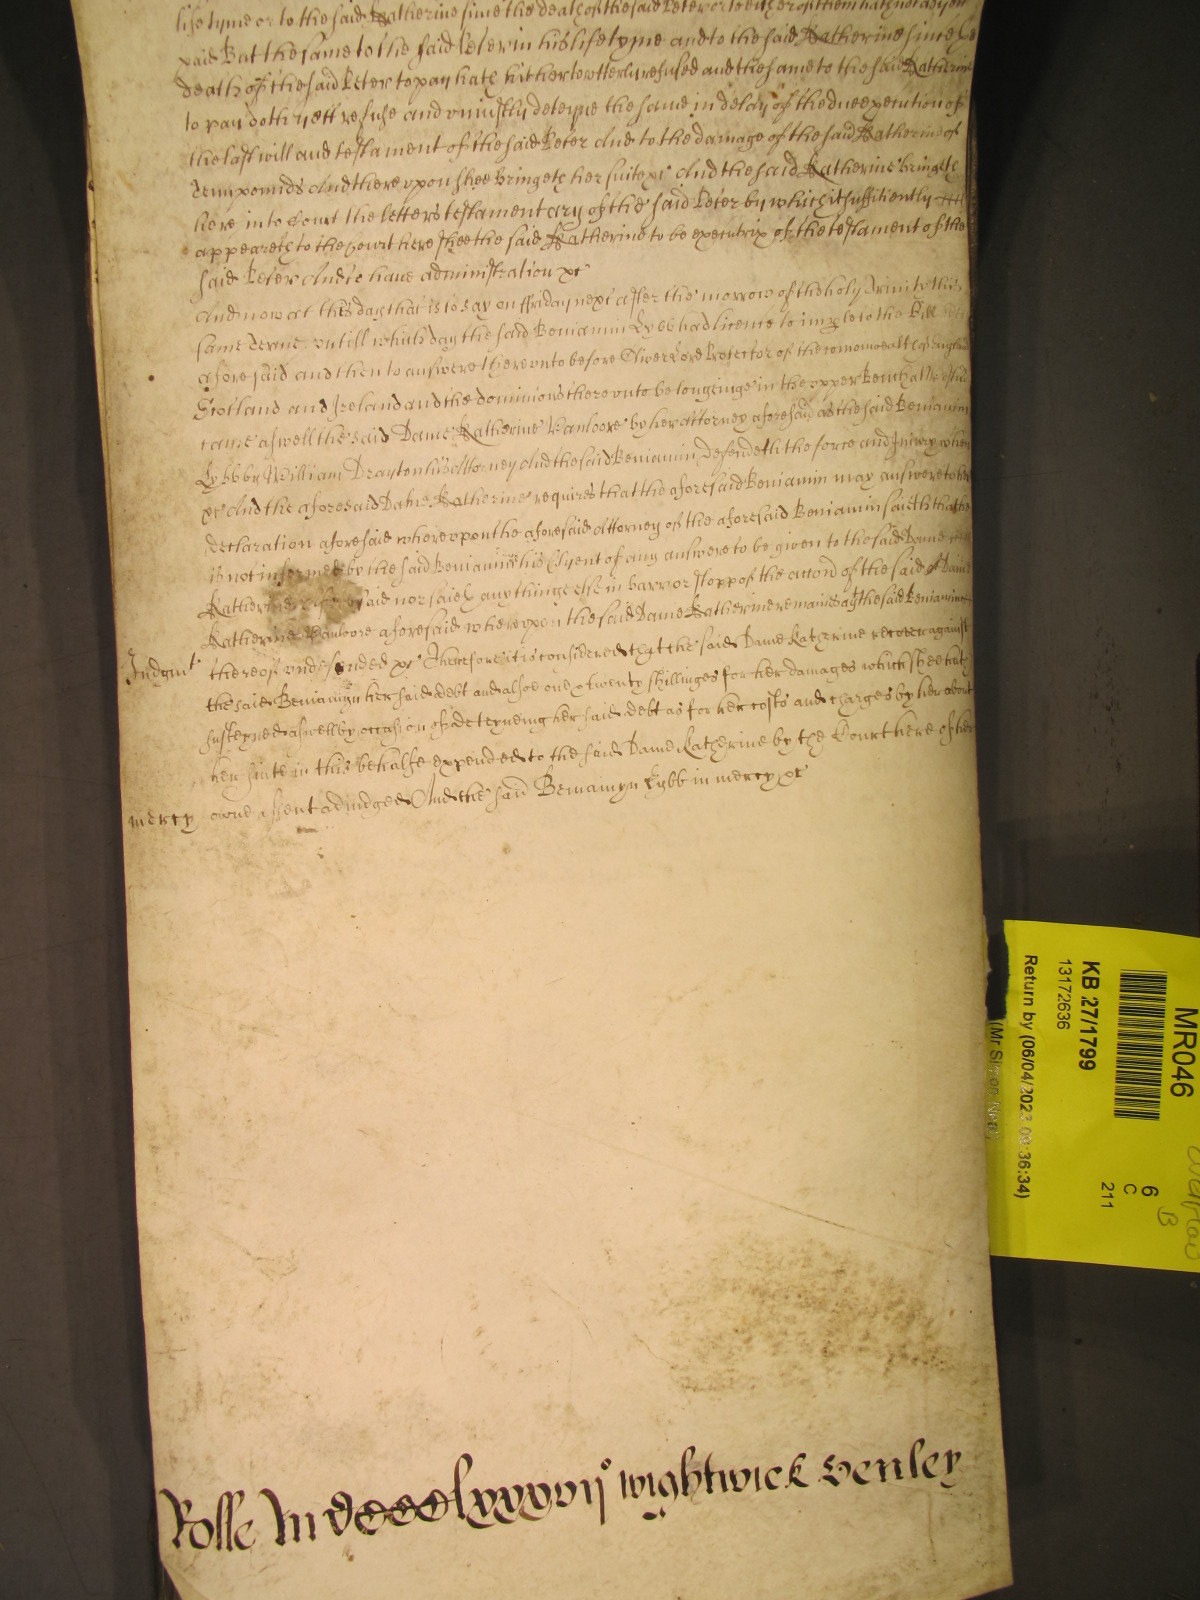 life tyme or to the said Katherine since the death of the said Peter or to either of them hath not as yett
paid But the same to the said Peter in his life tyme and to the said Katherine since the
death of the said Peter to pay hath hitherto utterly refused and the same to the said Katherine
to pay doth yett refuse and uniustly deteyne the same in delay of the due execution of
the last will and testament of the said Peter And to the damage of the said Katherine of
Tenn pounds And thereupon shee bringeth her suite xc And the said Katherine bringeth
here into Court the letters testamentary of the said Peter by which it sufficiently
appeareth to the Court here shee the said Katherine to be executrix of the testament of the
said Peter And to have administration xc
And now at this day that is to say on ffriday next after the morrow of the holy Trinity this
same Terme untill which day the said Beniamin Lybb had licence to imple to the Bill
aforesaid and then to answere thereunto before Oliver Lord Protector of the comonwealth of England
Scotland and Ireland and the dominions thereunto belonginge in the upper Bench att Westm
came aswell the said Dame Katherine Vanloore by her attorney aforesaid as the said Beniamin
Lybb by William Drayton his Attorney And the said Beniamin defendeth the force and Iniury when
xc And the aforesaid Dame Katherine requires that the aforesaid Beniamin may answere to her
declaration aforesaid whereupon the aforesaid Attorney of the aforesaid Beniamin saieth that hee
is not informed by the said Beniamin his Clyent of any answere to be given to the said Dame
Katherine aforesaid nor saieth any thinge else in barr or stopp of the accion of the said Dame
Katherine Vanloore aforesaid whereupon the said Dame Katherine remaines agt the said Beniamin
Judgmt thereof undefended xc Therefore it is considered that the said Dame Katherine recover against
the said Beniamyn her said debt and alsoe one & twenty shillinges for her damages which shee hath
susteyned aswell by occasion of deteyneing her said debt as for her costs and charges by her about
her suite in this behalfe expended to the said Dame Katherine by the Court here of her
mercy owne assent adiudged And the said Beniamyn Lybb in mercy xc
Rolle Mdccclxxxvij Wightwick Henley
MR046
KB 27/1799
13172636
Return by (06/04/2023 09:36:34)
6
C
211
B